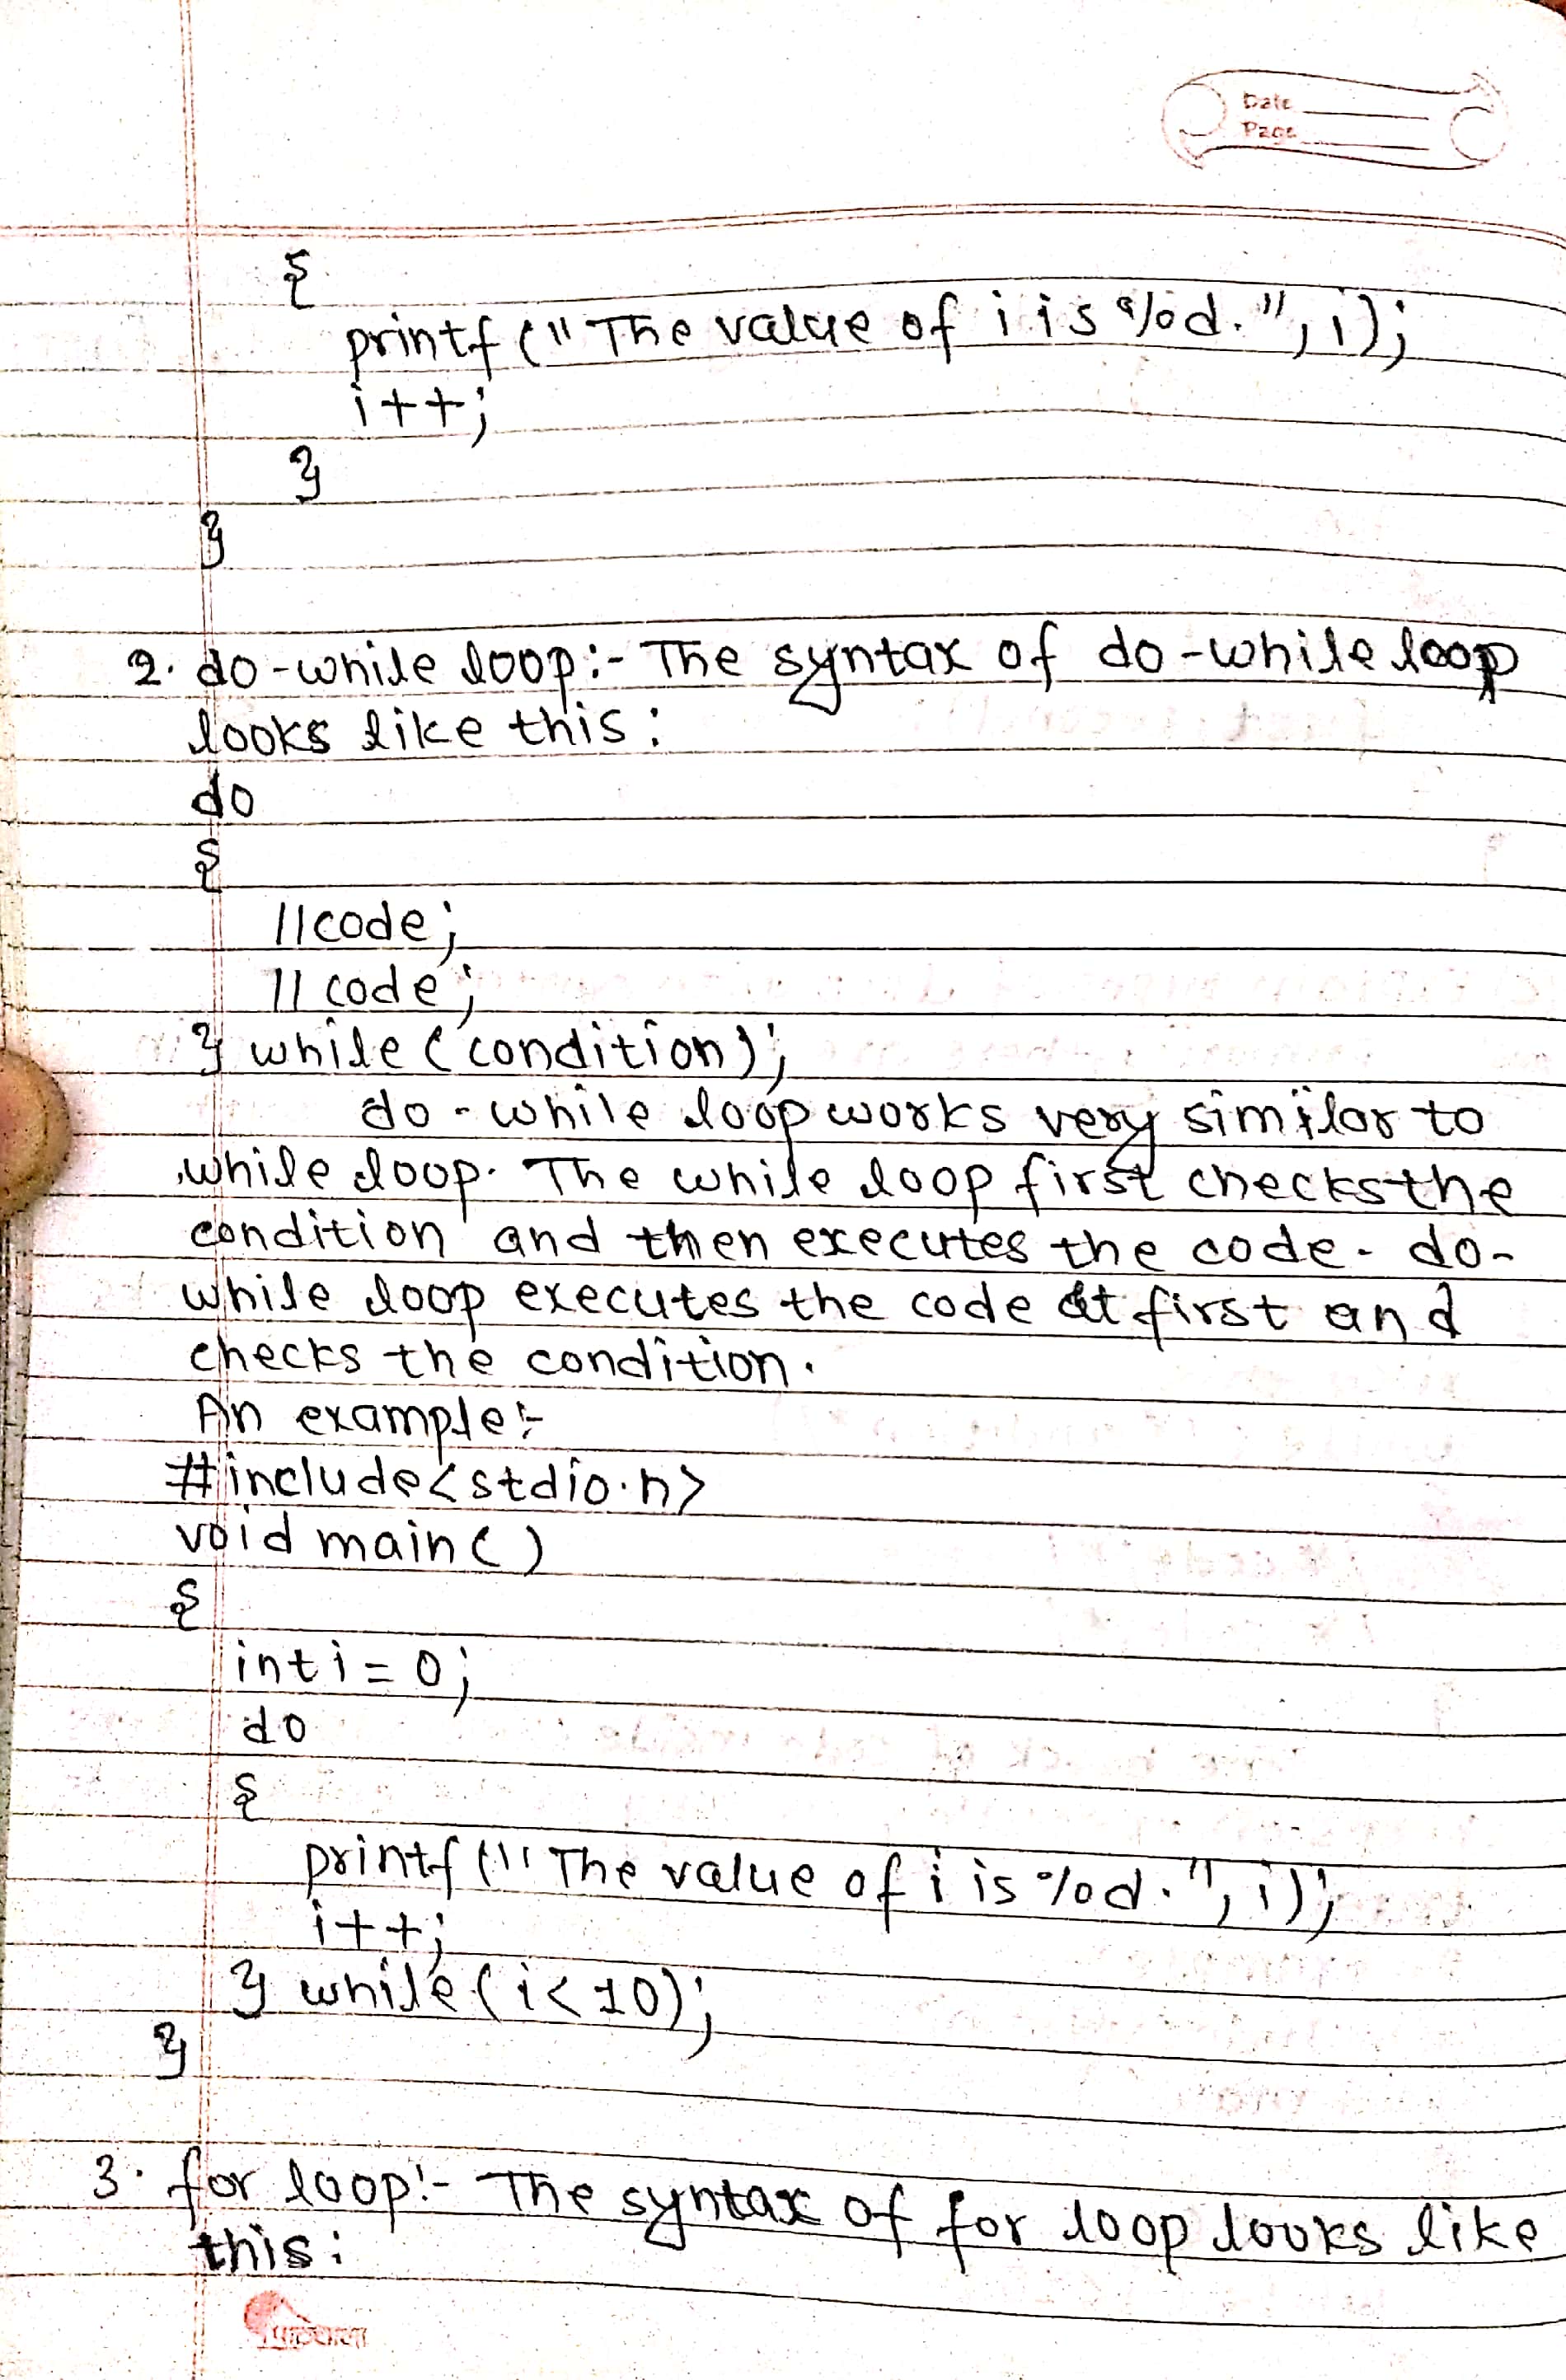 Date
Page
{
printf("The value of i is %d.", i);
i++;
}
}
2. do-while loop:- The syntax of do-while loop
looks like this:
do
{
//code;
// code;
} while (condition);
do-while loop works very similar to
while loop. The while loop first checks the
condition and then executes the code. do-
while loop executes the code at first and
checks the condition.
An example:-
#include<stdio.h>
void main()
{
int i = 0;
do
{
printf("The value of i is %d.", i);
i++;
} while (i<10);
}
3. for loop:- The syntax of for loop looks like
this: